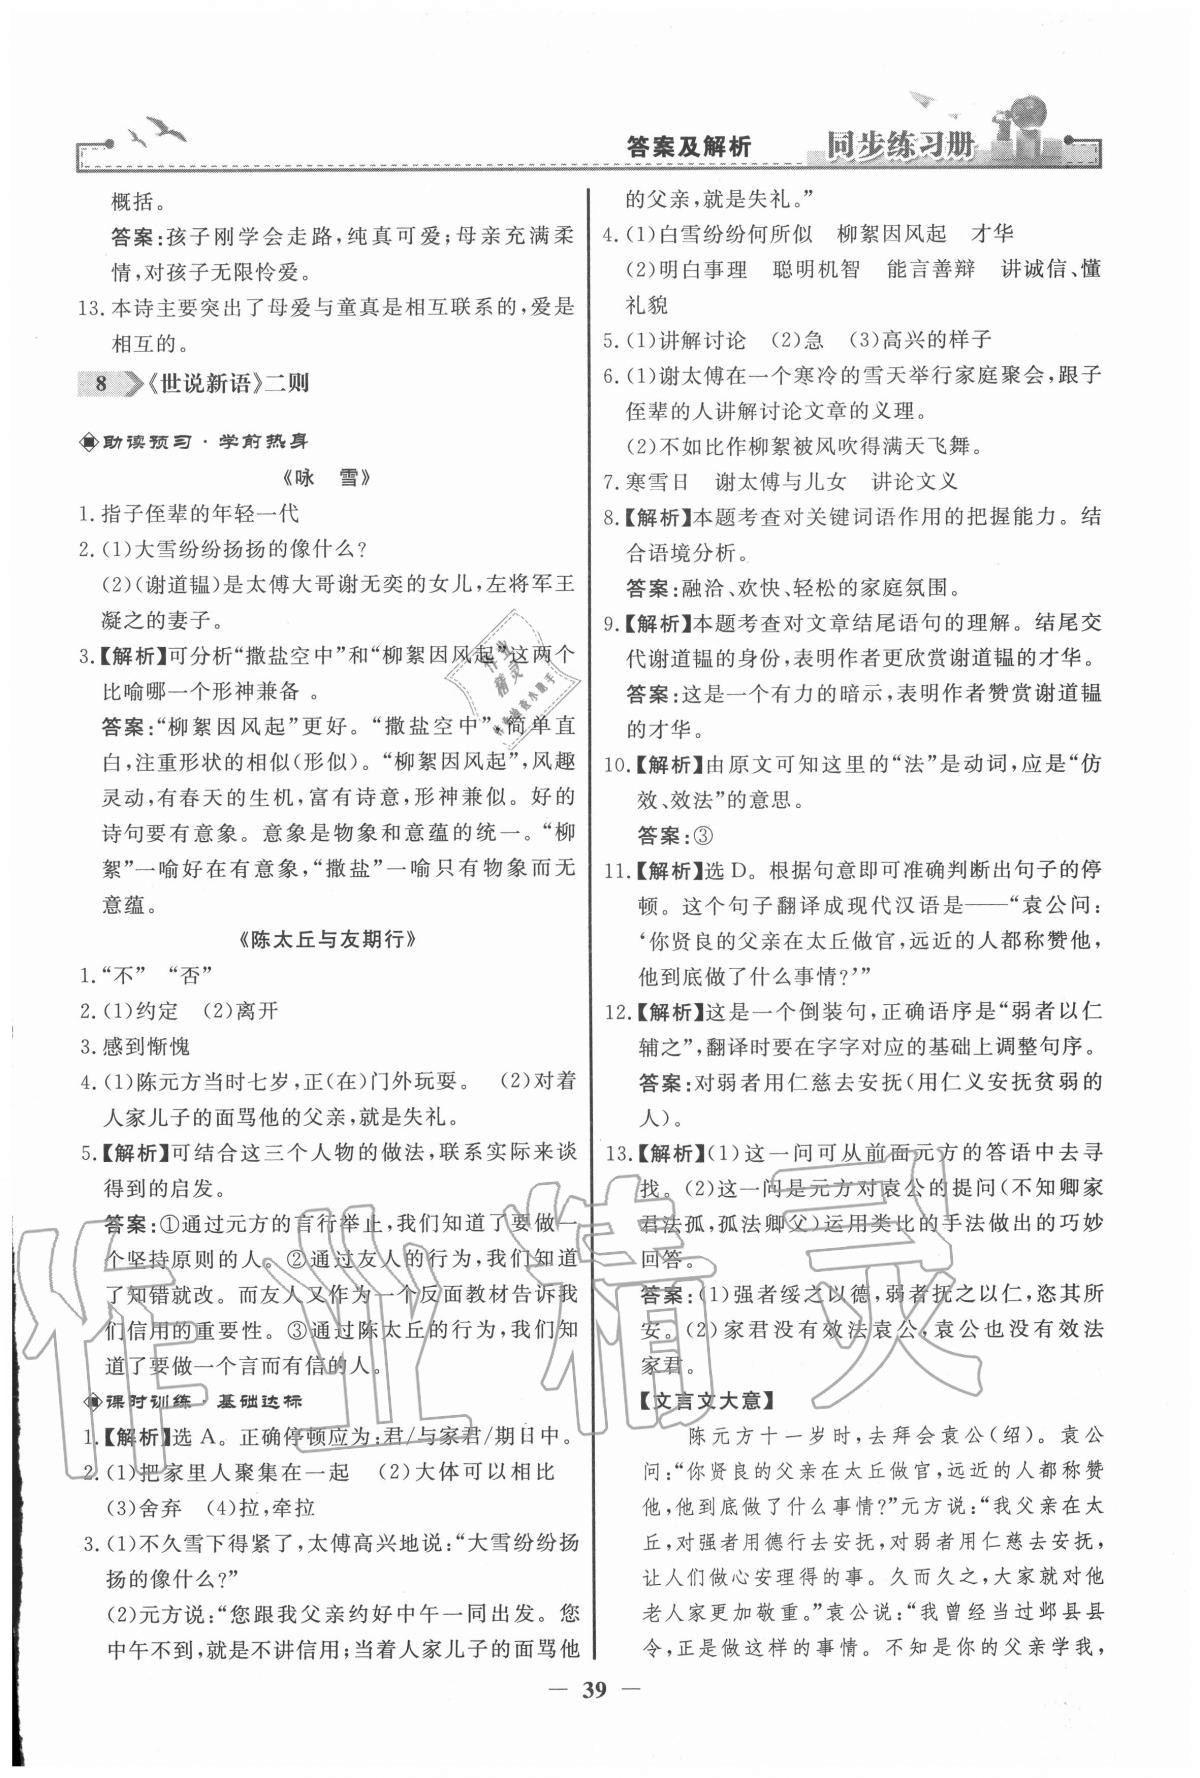 答案及解析 同步练习册
概括。
答案:孩子刚学会走路,纯真可爱;母亲充满柔
情,对孩子无限怜爱。
13. 本诗主要突出了母爱与童真是相互联系的,爱是
相互的。
8 《世说新语》二则
助读预习·学前热身
《咏 雪》
1. 指子侄辈的年轻一代
2. (1)大雪纷纷扬扬的像什么?
(2)(谢道韫)是太傅大哥谢无奕的女儿,左将军王
凝之的妻子。
3. 【解析】可分析“撒盐空中”和“柳絮因风起”这两个
比喻哪一个形神兼备 。
答案:“柳絮因风起”更好。“撒盐空中”,简单直
白,注重形状的相似(形似)。“柳絮因风起”,风趣
灵动,有春天的生机,富有诗意,形神兼似。好的
诗句要有意象。意象是物象和意蕴的统一。“柳
絮”一喻好在有意象,“撒盐”一喻只有物象而无
意蕴。
《陈太丘与友期行》
1. “不” “否”
2. (1)约定 (2)离开
3. 感到惭愧
4. (1)陈元方当时七岁,正(在)门外玩耍。 (2)对着
人家儿子的面骂他的父亲,就是失礼。
5. 【解析】可结合这三个人物的做法,联系实际来谈
得到的启发。
答案:①通过元方的言行举止,我们知道了要做一
个坚持原则的人。②通过友人的行为,我们知道
了知错就改。而友人又作为一个反面教材告诉我
们信用的重要性。③通过陈太丘的行为,我们知
道了要做一个言而有信的人。
课时训练·基础达标
1. 【解析】选 A。正确停顿应为:君/与家君/期日中。
2. (1)把家里人聚集在一起 (2)大体可以相比
(3)舍弃 (4)拉,牵拉
3. (1)不久雪下得紧了,太傅高兴地说:“大雪纷纷扬
扬的像什么?”
(2)元方说:“您跟我父亲约好中午一同出发。您
中午不到,就是不讲信用;当着人家儿子的面骂他
的父亲,就是失礼。”
4. (1)白雪纷纷何所似 柳絮因风起 才华
(2)明白事理 聪明机智 能言善辩 讲诚信、懂
礼貌
5. (1)讲解讨论 (2)急 (3)高兴的样子
6. (1)谢太傅在一个寒冷的雪天举行家庭聚会,跟子
侄辈的人讲解讨论文章的义理。
(2)不如比作柳絮被风吹得满天飞舞。
7. 寒雪日 谢太傅与儿女 讲论文义
8. 【解析】本题考查对关键词语作用的把握能力。结
合语境分析。
答案:融洽、欢快、轻松的家庭氛围。
9. 【解析】本题考查对文章结尾语句的理解。结尾交
代谢道韫的身份,表明作者更欣赏谢道韫的才华。
答案:这是一个有力的暗示,表明作者赞赏谢道韫
的才华。
10. 【解析】由原文可知这里的“法”是动词,应是“仿
效、效法”的意思。
答案:③
11. 【解析】选 D。根据句意即可准确判断出句子的停
顿。这个句子翻译成现代汉语是——“袁公问:
‘你贤良的父亲在太丘做官,远近的人都称赞他,
他到底做了什么事情?’”
12. 【解析】这是一个倒装句,正确语序是“弱者以仁
辅之”,翻译时要在字字对应的基础上调整句序。
答案:对弱者用仁慈去安抚(用仁义安抚贫弱的
人)。
13. 【解析】(1)这一问可从前面元方的答语中去寻
找。(2)这一问是元方对袁公的提问(不知卿家
君法孤,孤法卿父)运用类比的手法做出的巧妙
回答。
答案:(1)强者绥之以德,弱者抚之以仁,恣其所
安。(2)家君没有效法袁公,袁公也没有效法
家君。
【文言文大意】
陈元方十一岁时,去拜会袁公(绍)。袁公
问:“你贤良的父亲在太丘做官,远近的人都称赞
他,他到底做了什么事情?”元方说:“我父亲在太
丘,对强者用德行去安抚,对弱者用仁慈去安抚,
让人们做心安理得的事。久而久之,大家就对他
老人家更加敬重。”袁公说:“我曾经当过邺县县
令,正是做这样的事情。不知是你的父亲学我,
— 39 —
作业精灵